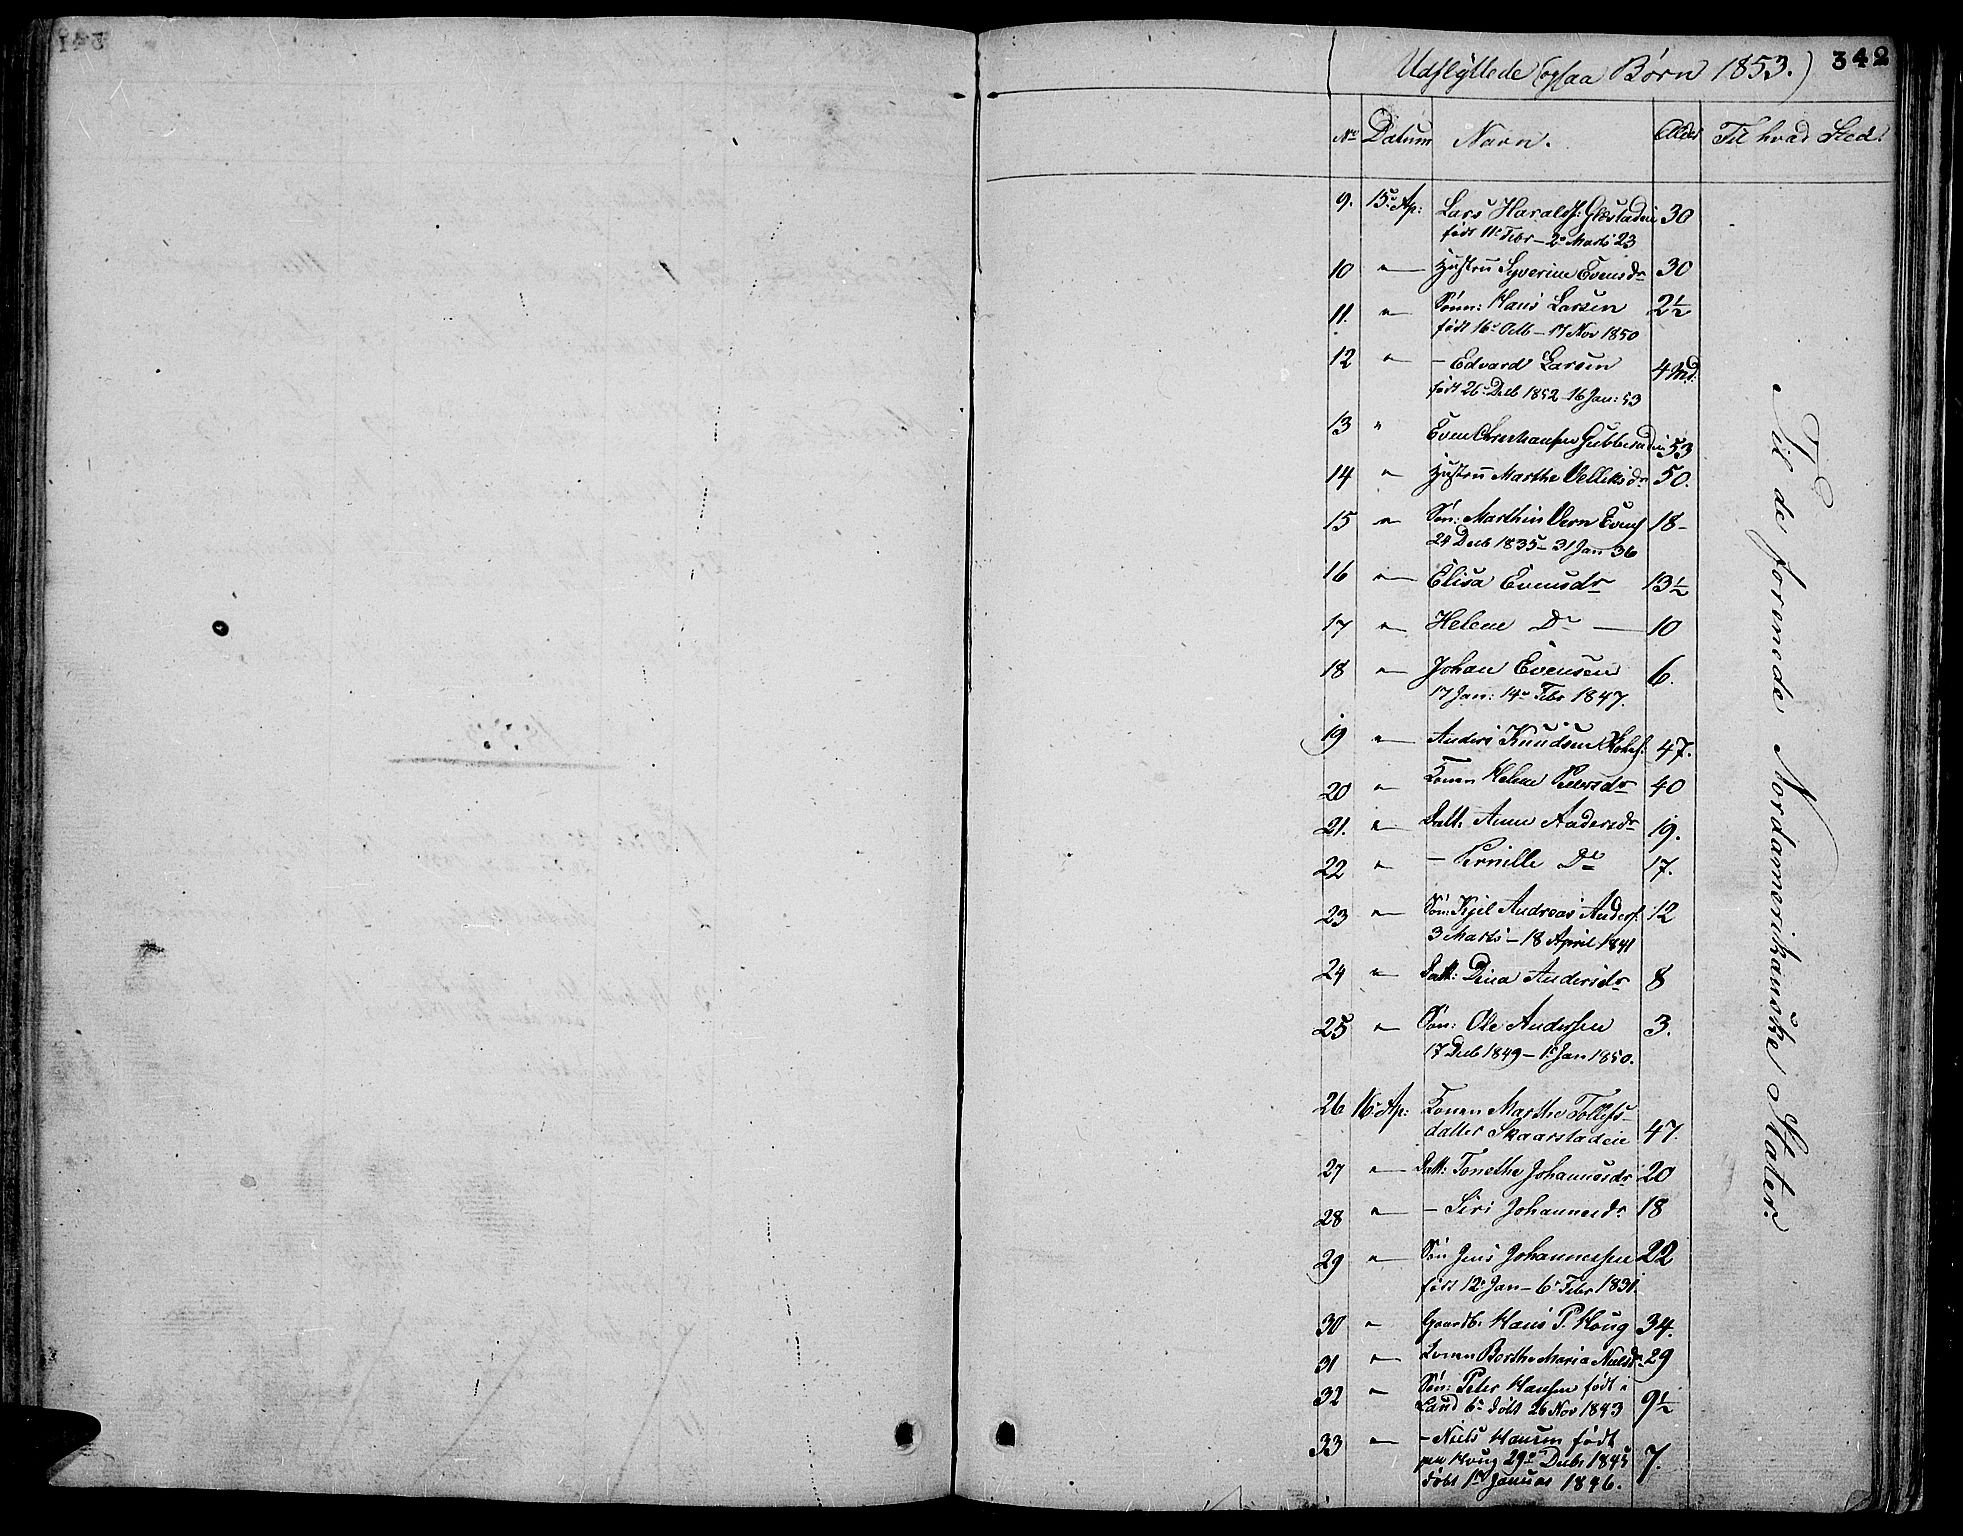 342
Udflÿttede (ogsaa Børn 1853.)
No Datum Navn. Alder Til hvad Sted.
9. 15 Ap: Lars Haralds: 30
født 11 Febr – 2 Marts 23
10 " Hustru Syverine Evensdr 30
11. " Sønn: Hans Larsen 2½
født 16 Octb – 17 Nov 1850
12 " – Edvard Larsen 4 Md.
født 26 Decb 1852 – 16 Jan: 53
13 " Even 53
14 " Hustru Marthe 50.
15 " Søn: Marthin Evens 18–
24 Decb 1835 – 31 Jan 36
16 " Elisa Evensdr 13½
17 " Helene Do — 10
18 " Johan Evensen 6.
17 Jan: 14 Febr 1847.
19 " Anders Knudsen 47.
20 " Konen Helene Pedersdr 40
21. " Datt: Anne Andersdr 19.
22 " – Pernille Do 17.
23 " Søn: Kjel Andreas Anders: 12
3 Marts – 18 April 1841
24 " Datt: Dina Andersdr 8
25 " Søn: Ole Andersen 3.
17 Decb 1849 – 1 Jan 1850.
26 16 Ap: Konen Marthe Tollefs-
datter Skaarstadeie 47.
27 " Datt: Tonethe Johannesdr 20
28 " – Siri Johannesdr 18
29 " Søn Jens Johannessen 22
født 12 Jan – 6 Febr 1831
30 " Gaardb: Hans P. Houg 34.
31 " Konen Berthe Maria Nielsdr 29
32 " Søn: Peter Hansen født i
Land 6 døbt 26 Nov 1843 9½
33 " – Niels Hansen født
paa Houg 29 Decbr 1845
døbt 1 Januar 1846. 7.
Til de forenede Nordamerikanske Stater.